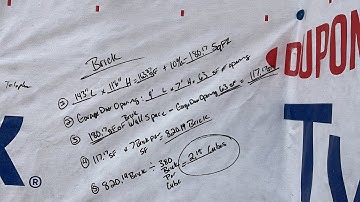 Brick
① 14'3" L x 11'6" H = 163.8 SF + 10% = 180.17 Sq FT
② Garage Door Opening: 9' L x 7' H = 63 SF of opening
③ 180.17 SF of Brick Wall Space - Garage Door Opening 63 SF = 117.17 SF
④ 117.17 SF x 7 Brick per SF = 820.19 Brick
⑤ 820.19 Brick ÷ 380 Brick Per Cube = 2.15 Cubes
DUPON
Ty
®